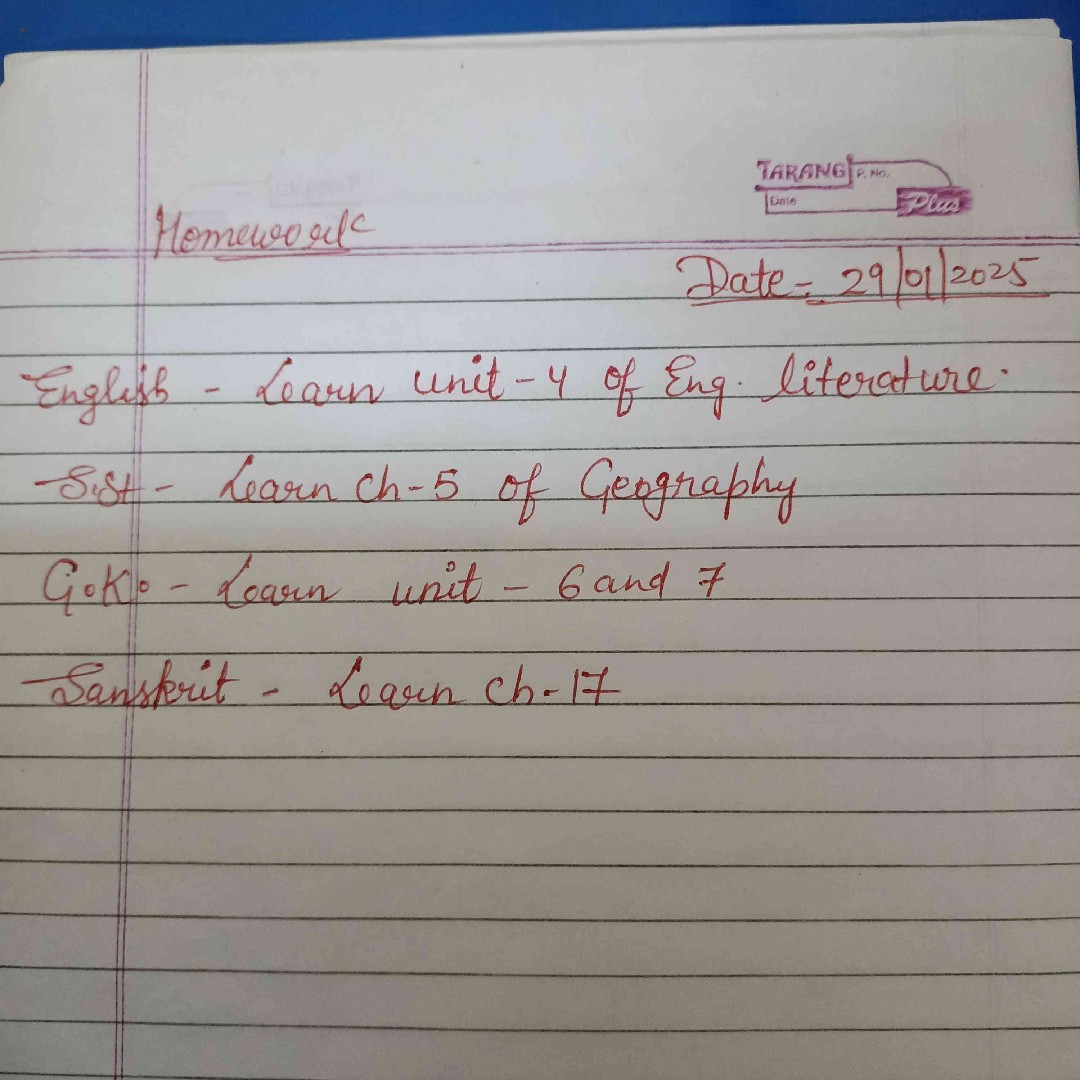 TARANG P. No.
Date Plus
Homework
Date - 29/01/2025
English - Learn unit - 4 of Eng. literature.
S.St - Learn Ch-5 of Geography
G.K. - Learn unit - 6 and 7
Sanskrit - Learn Ch-17